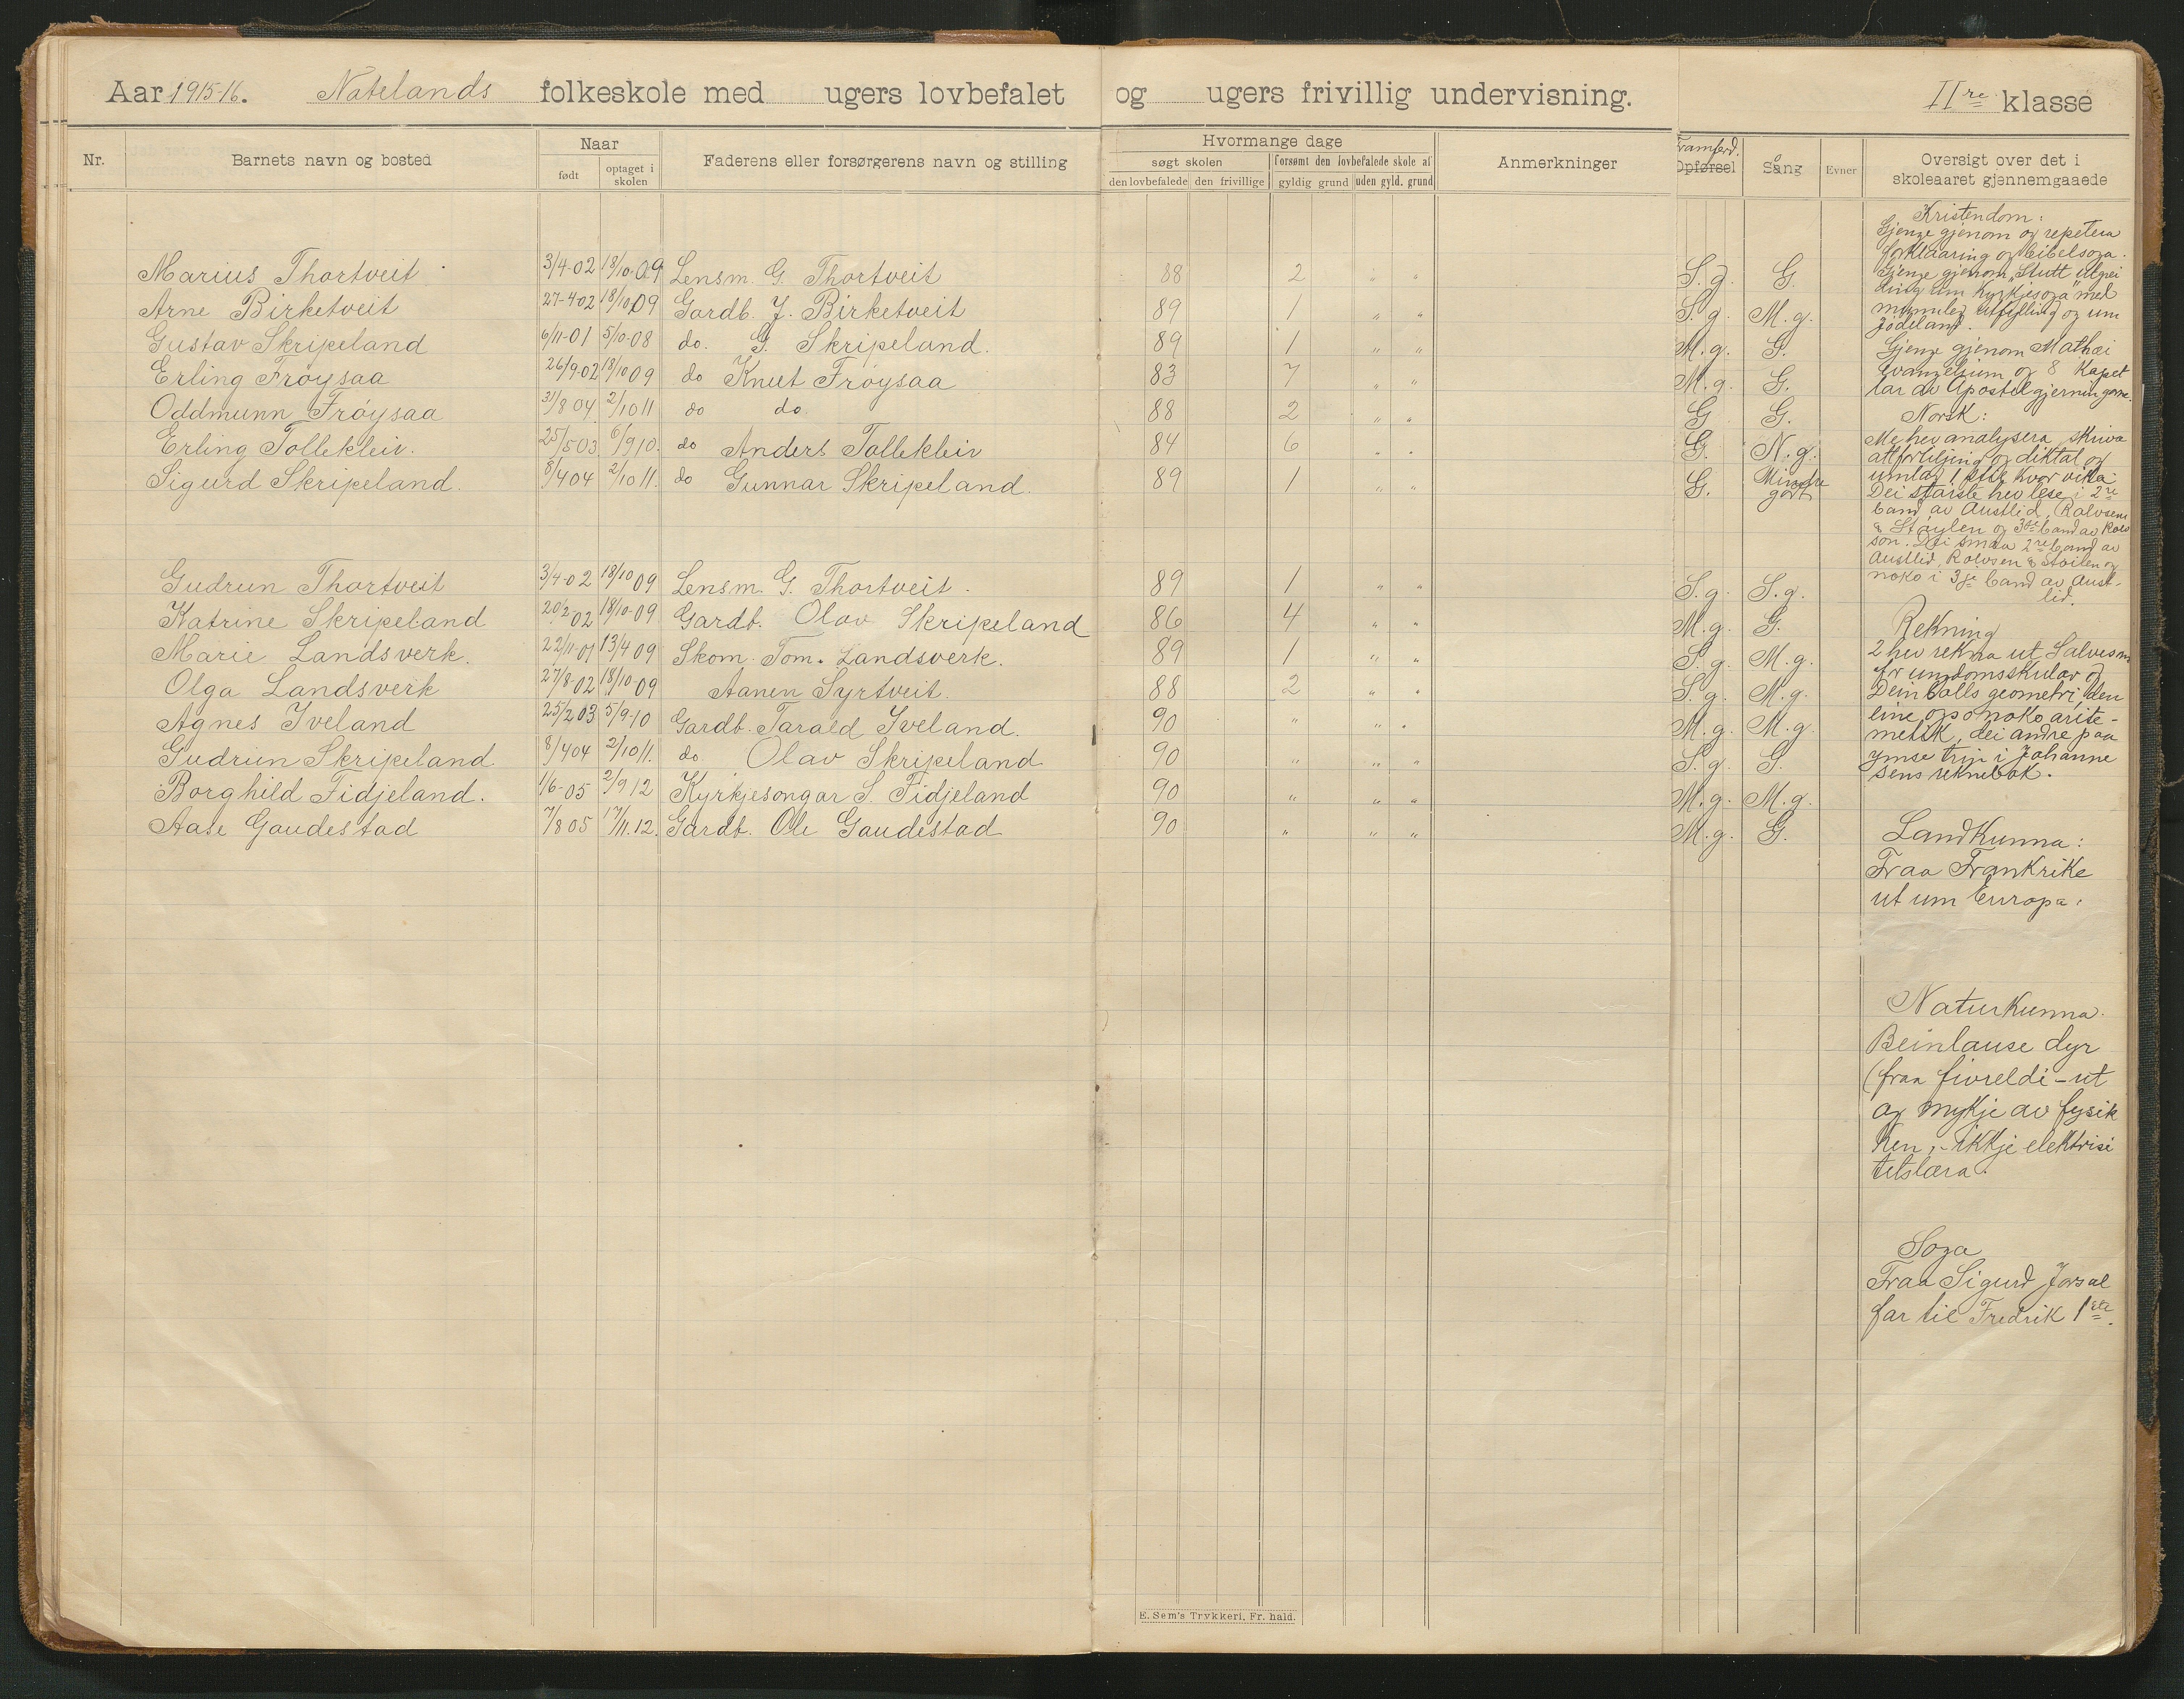 Aar 1915-16. Natelands folkeskole med ugers lovbefalet og ugers frivillig undervisning. II re klasse
Nr. Barnets navn og bosted Naar født optaget i skolen Faderens eller forsørgerens navn og stilling
Hvormange dage søgt skolen den lovbefalede den frivillige forsømt den lovbefalede skole af gyldig grund uden gyld. grund Anmerkninger
Framferd. Opførsel Sang Evner Oversigt over det i skoleaaret gjennemgaaede
Marius Thortveit 3/4-02 18/10-09 Lensm. G. Thortveit 88 2 " " S.g. G.
Arne Birketveit 27-4-02 18/10 09 Gardb. J. Birketveit 89 1 " " S.g. M.g.
Gustav Skripeland 6/11-01 5/10-08 do. G. Skripeland. 89 1 " " M.g. G.
Erling Frøysaa 26/9-02 18/10 09 do Knut Frøysaa 83 7 " " M.g. G.
Oddmunn Frøysaa 31/8 04 2/10 11 do do 88 2 " " G G.
Erling Tollekleiv. 25/5 03 6/9 10. do Anders Tollekleiv 84 6 " " G. N.g.
Sigurd Skripeland. 8/4 04 2/10 11. do Gunnar Skripeland. 89 1 " " G. Mindre godt
Gudrun Thortveit 3/4-02 18/10 09 Lensm. G. Thortveit. 89 1 " " S.g. S.g.
Katrine Skripeland 20/2-02 18/10-09 Gardb. Olav Skripeland 86 4 " " M.g. G.
Marie Landsverk. 22/11-01 13/4 09 Skom. Tom. Landsverk. 89 1 " " S.g. M.g.
Olga Landsverk 27/8-02 18/10-09 Aanen Syrtveit. 88 2 " " S.g. M.g.
Agnes Iveland 25/2 03 5/9-10 Gardb. Tarald Iveland. 90 " " " M.g. M.g.
Gudrun Skripeland 8/4 04 2/10 11. do Olav Skripeland 90 " " " S.g. G.
Borghild Fidjeland. 1/6-05 2/9 12 Kyrkjesongar S. Fidjeland 90 " " " M.g. M.g.
Aase Gaudestad 7/8 05 17/11.12. Gardb. Ole Gaudestad 90 " " " M.g. G.
Kristendom:
Gjenge gjenom og repetera
forklaaring og bibelsoga.
Gjenge gjenom "Stutt utgrei
ding um kyrkjesoga" med
munnleg utfylling og um
Jødeland.
Gjenge gjenom Mathæi
Evangelium og 8 kapet
lar av Apostelgjerningane.
Norsk:
Me hev analysera, skriva
attforteljing og diktat og
umlag 1 stil kvar vika.
Dei største hev lese i 2re
band av Austlid, Rolvsen
& Støylen og 3die band av Rolv
son. Dei smaa 2re band av
Austlid, Rolvsen & Støilen og
noko i 3je band av Aust-
lid.
Rekning
2 hev rekna ut Salvesens
for ungdomsskular og
Deinbolls geometri, den
eine ogso noko arite-
metikk, dei andre paa
ymse trin i Johanne
sens reknebok.
Landkunna:
Fraa Frankrike
ut um Europa.
Naturkunna.
Beinlause dyr
(fraa fivreldi - ut
og mykje av fysik
ken, - ikkje elektrisi
tetslæra.
Soga
Fraa Sigurd Jorsal
far til Fredrik 1ste.
E. Sem's Trykkeri, Fr. hald.